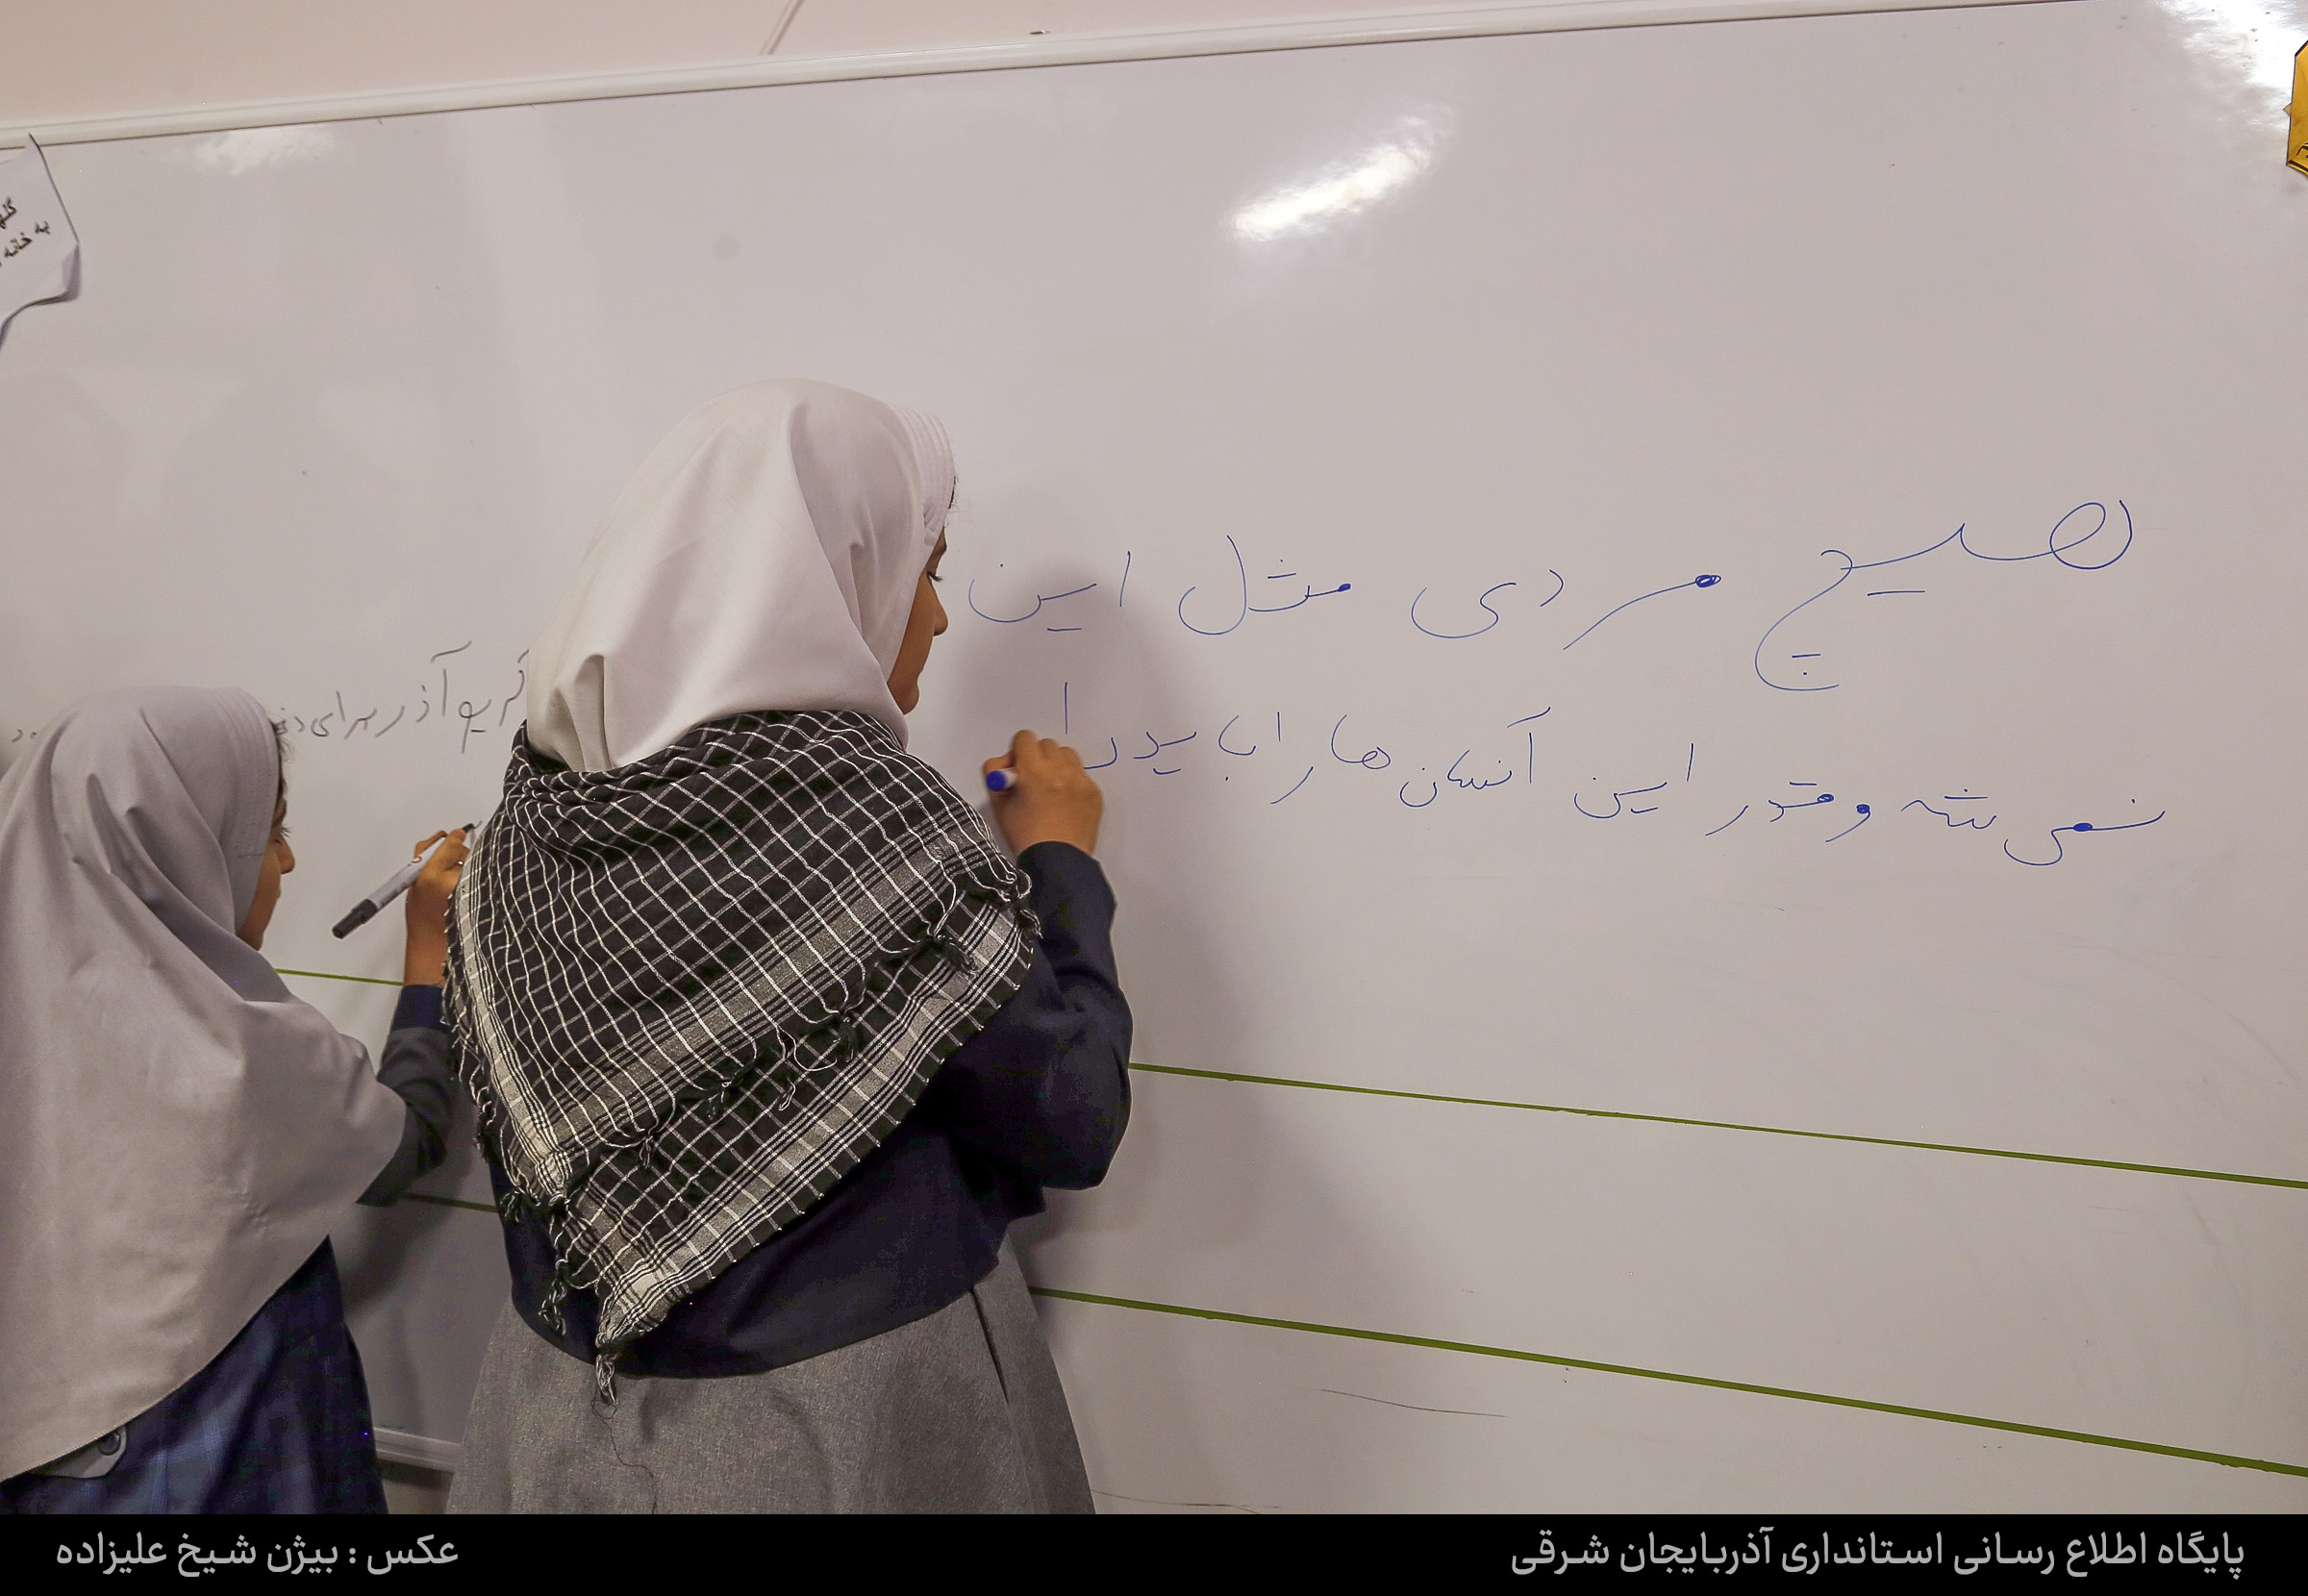 هیچ مردی مثل این
نمی شه و قدر این آنسان ها را باید دا
آذر برای
به خانه
پایگاه اطلاع رسانی استانداری آذربایجان شرقی
عکس : بیژن شیخ علیزاده